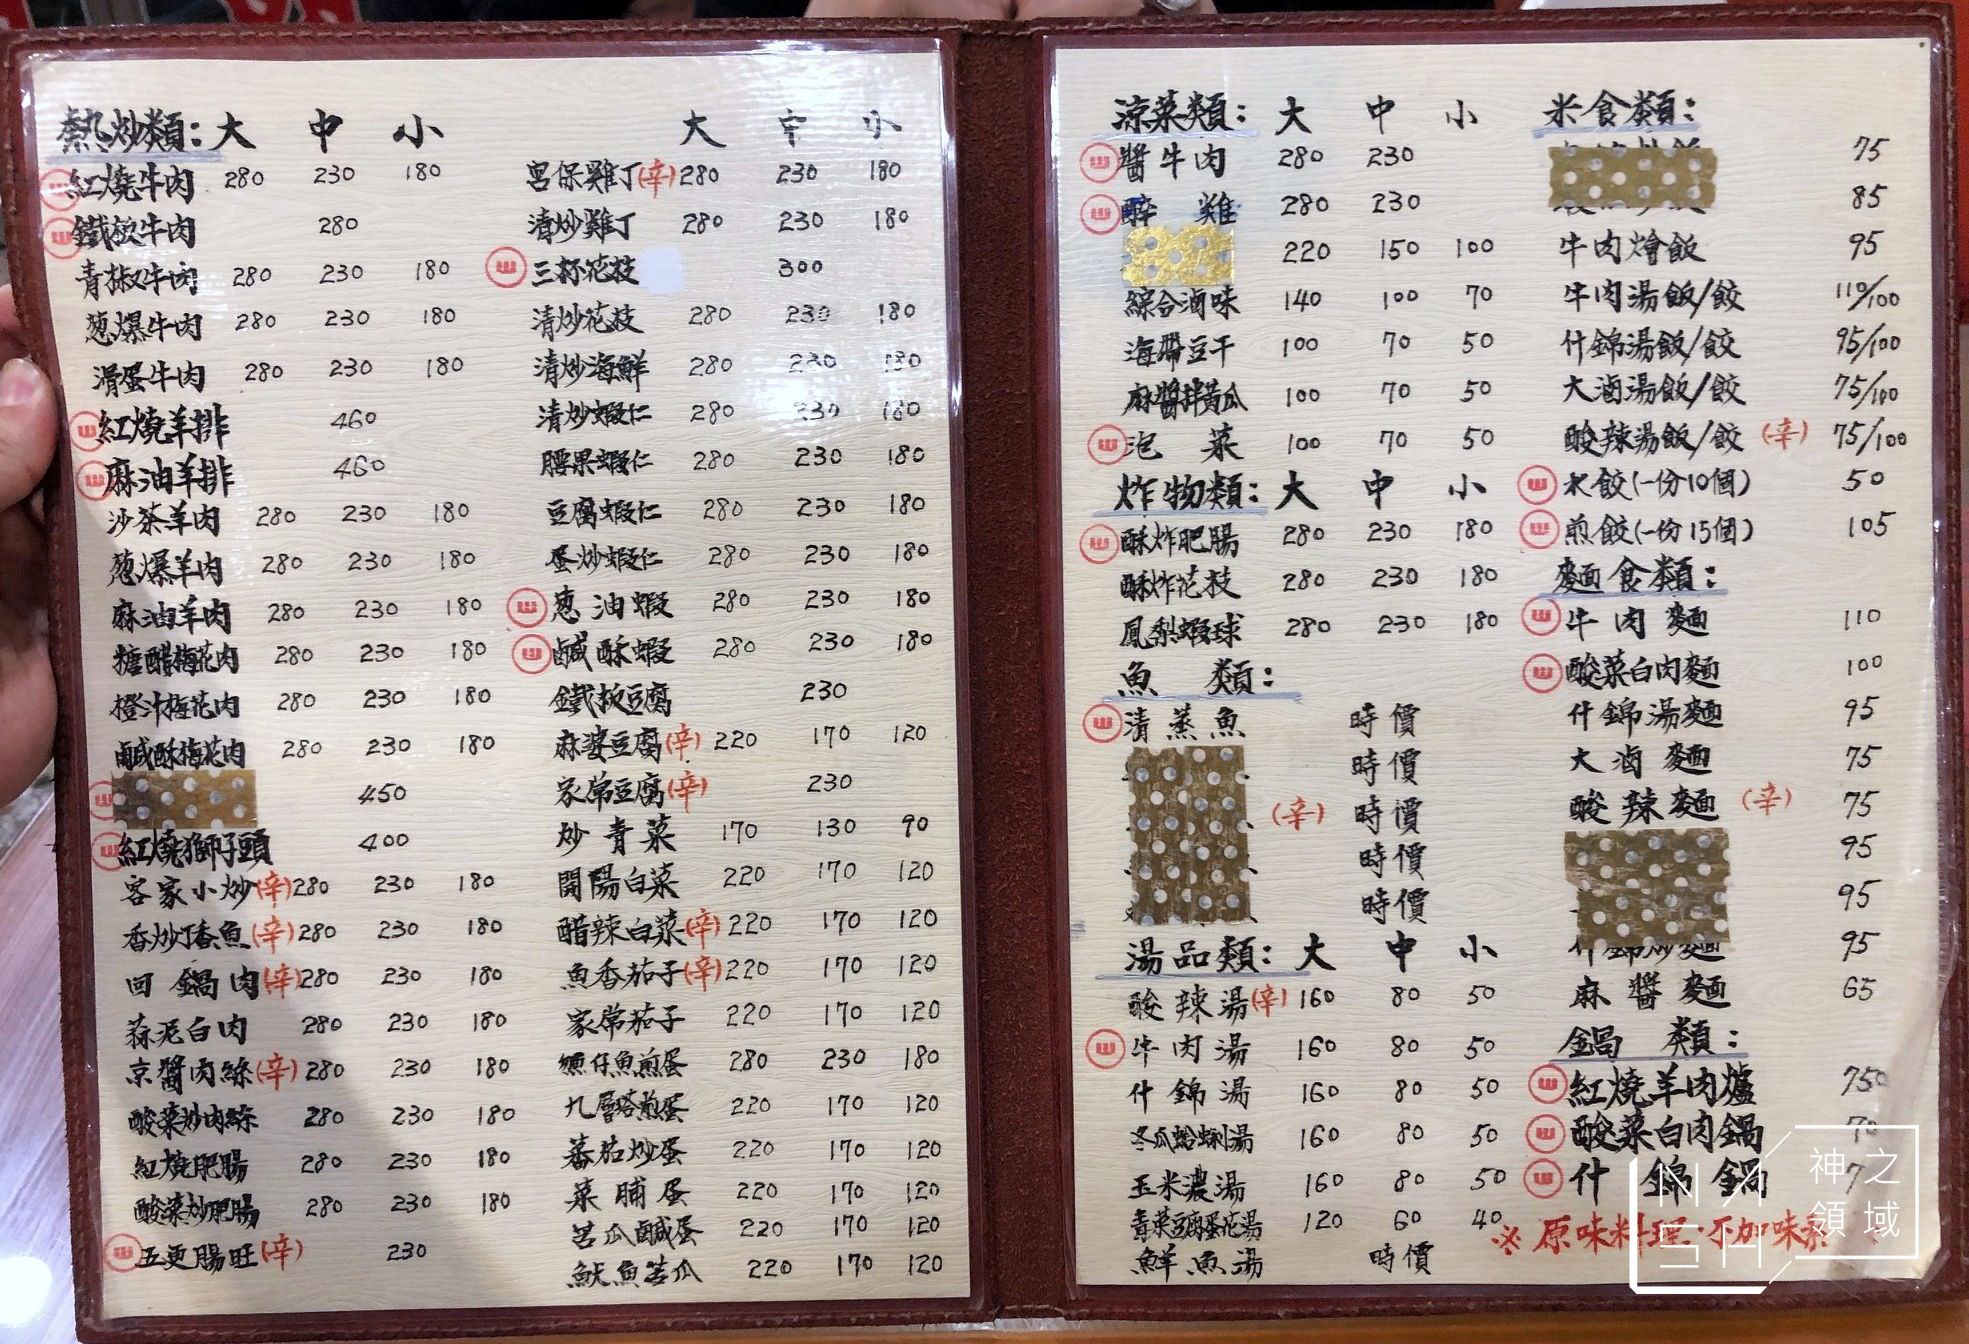 熱炒類: 大 中 小
紅燒牛肉 280 230 180
鐵板牛肉 280
青椒牛肉 280 230 180
葱爆牛肉 280 230 180
滑蛋牛肉 280 230 180
紅燒羊排 460
麻油羊排 460
沙茶羊肉 280 230 180
葱爆羊肉 280 230 180
麻油羊肉 280 230 180
糖醋梅花肉 280 230 180
橙汁梅花肉 280 230 180
鹹酥梅花肉 280 230 180
450
紅燒獅子頭 400
客家小炒(辛) 280 230 180
香炒丁香魚(辛) 280 230 180
回鍋肉(辛) 280 230 180
蒜泥白肉 280 230 180
京醬肉絲(辛) 280 230 180
酸菜炒肉絲 280 230 180
紅燒肥腸 280 230 180
酸菜炒肥腸 280 230 180
五更腸旺(辛) 230
大 中 小
宮保雞丁(辛) 280 230 180
清炒雞丁 280 230 180
三杯花枝 300
清炒花枝 280 230 180
清炒海鮮 280 230 180
清炒蝦仁 280 230 180
腰果蝦仁 280 230 180
豆腐蝦仁 280 230 180
蛋炒蝦仁 280 230 180
葱油蝦 280 230 180
鹹酥蝦 280 230 180
鐵板豆腐 230
麻婆豆腐(辛) 220 170 120
家常豆腐(辛) 230
炒青菜 170 130 90
開陽白菜 220 170 120
醋辣白菜(辛) 220 170 120
魚香茄子(辛) 220 170 120
家常茄子 220 170 120
魩仔魚煎蛋 280 230 180
九層塔煎蛋 220 170 120
蕃茄炒蛋 220 170 120
菜脯蛋 220 170 120
苦瓜鹹蛋 220 170 120
魷魚苦瓜 220 170 120
涼菜類: 大 中 小
醬牛肉 280 230
醉雞 280 230
220 150 100
綜合滷味 140 100 70
海帶豆干 100 70 50
麻醬拌黃瓜 100 70 50
泡菜 100 70 50
炸物類: 大 中 小
酥炸肥腸 280 230 180
酥炸花枝 280 230 180
鳳梨蝦球 280 230 180
魚類:
清蒸魚 時價
時價
(辛) 時價
時價
時價
湯品類: 大 中 小
酸辣湯(辛) 160 80 50
牛肉湯 160 80 50
什錦湯 160 80 50
冬瓜蛤蜊湯 160 80 50
玉米濃湯 160 80 50
青菜豆腐蛋花湯 120 60 40
鮮魚湯 時價
米食類:
75
85
牛肉燴飯 95
牛肉湯飯/餃 110/100
什錦湯飯/餃 95/100
大滷湯飯/餃 75/100
酸辣湯飯/餃 (辛) 75/100
水餃(一份10個) 50
煎餃(一份15個) 105
麵食類:
牛肉麵 110
酸菜白肉麵 100
什錦湯麵 95
大滷麵 75
酸辣麵 (辛) 75
95
95
什錦炒麵 95
麻醬麵 65
鍋類:
紅燒羊肉爐 750
酸菜白肉鍋
什錦鍋
※原味料理·不加味素
NASH 神之領域